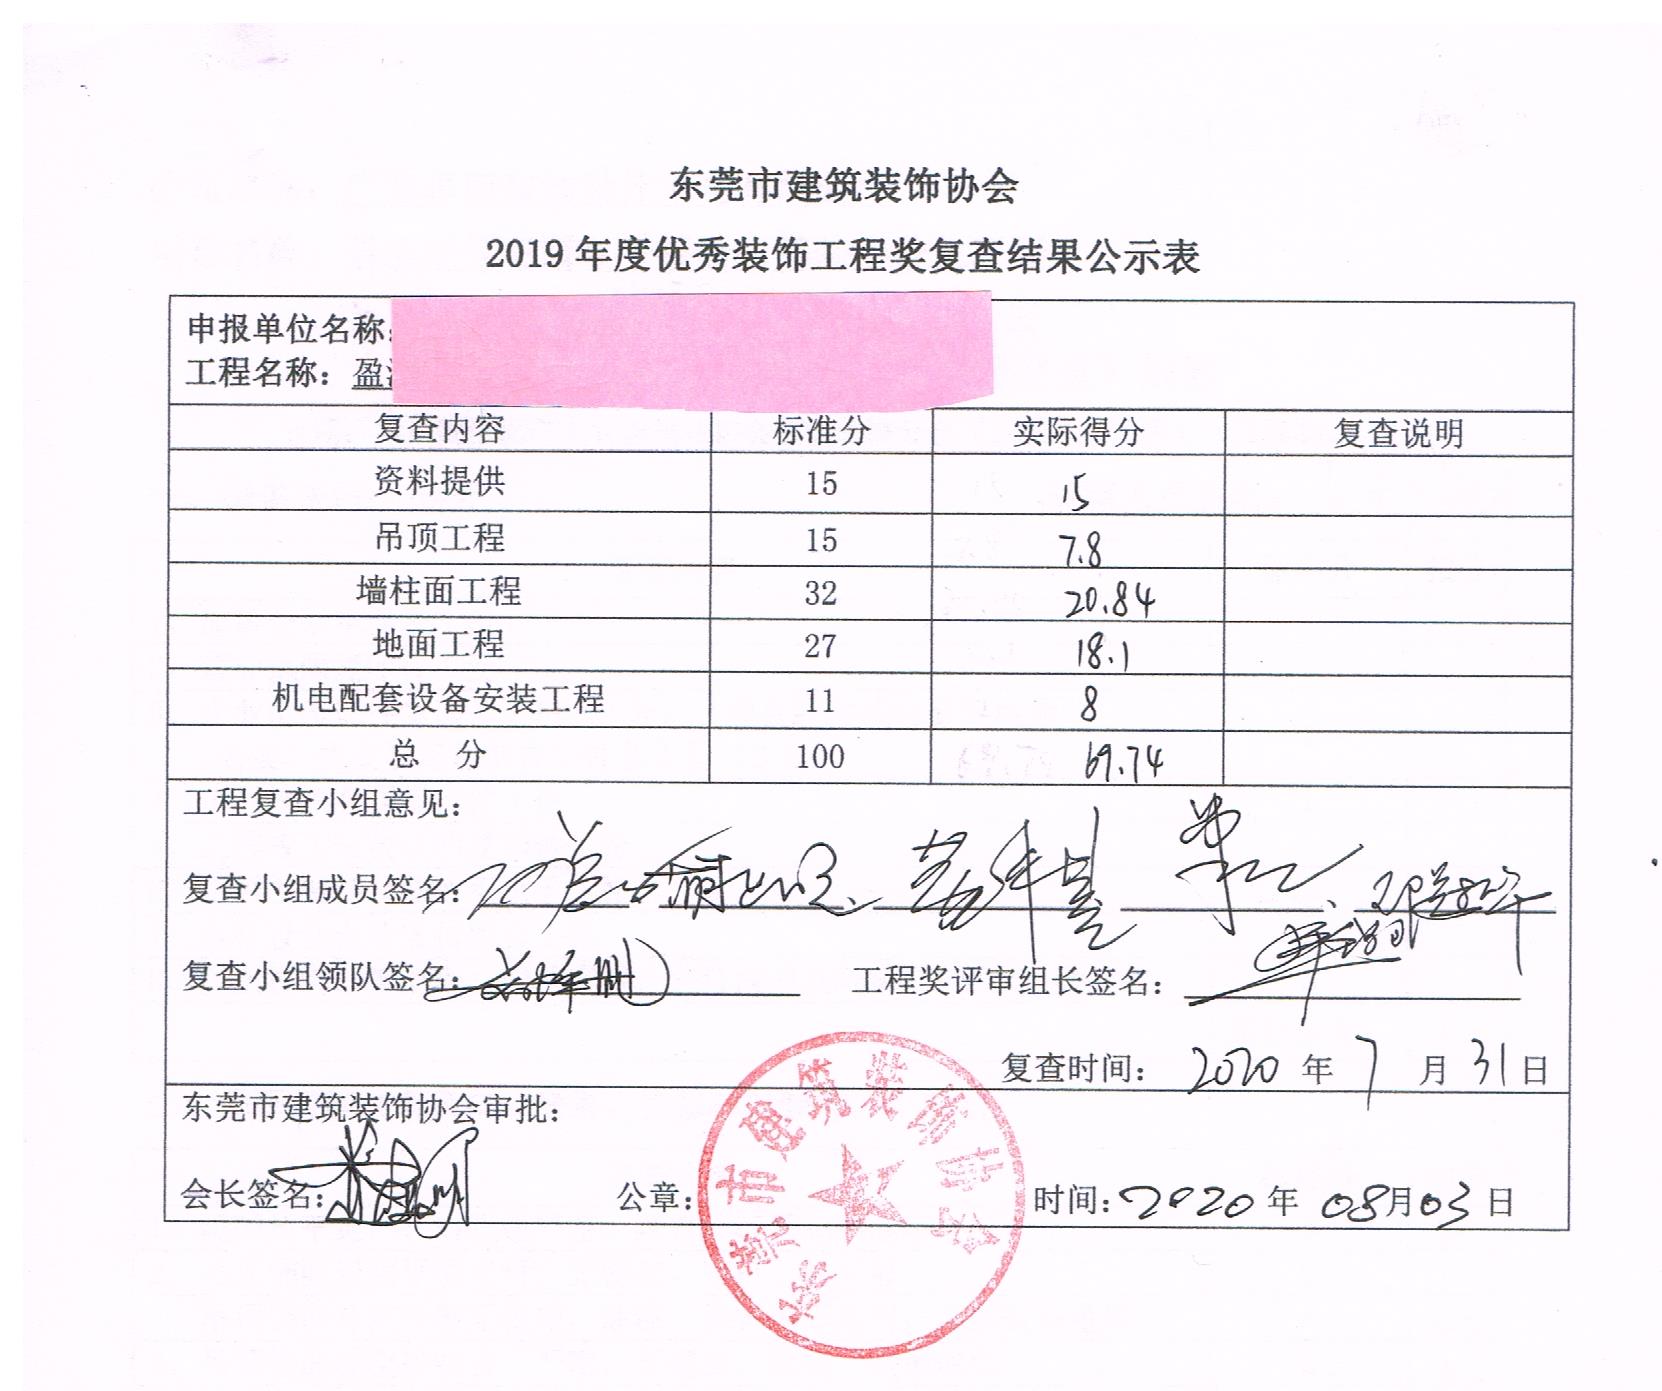 东莞市建筑装饰协会
2019年度优秀装饰工程奖复查结果公示表
申报单位名称:
工程名称：盈
复查内容 标准分 实际得分 复查说明
资料提供 15 15
吊顶工程 15 7.8
墙柱面工程 32 20.84
地面工程 27 18.1
机电配套设备安装工程 11 8
总 分 100 69.74
工程复查小组意见：
复查小组成员签名：
复查小组领队签名： 工程奖评审组长签名：
复查时间： 2020 年 7 月 31 日
东莞市建筑装饰协会审批：
会长签名： 公章： 时间：2020 年 08月03 日
东莞市建筑装饰协会